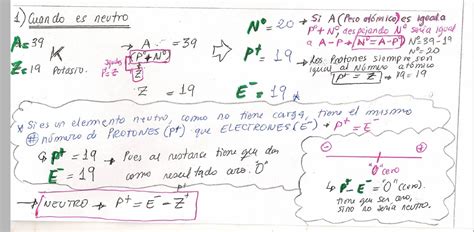 1) Cuando es neutro
A=39
Z=19
K
Potasio.
→ A = 39
(P⁺+N°)
Z = 19
N° = 20
P⁺ = 19
E⁻ = 19
→ Si A (Peso atómico) es igual a
P⁺+N° despejando N° sería igual
a A-P → N°=A-P⁺ N°=39-19
N°=20
→ Los Protones siempre son
igual al Número atómico
P⁺ = Z → Pa=19
* Si es un elemento neutro, como no tiene carga, tiene el mismo
# número de PROTONES (P⁺) que ELECTRONES (E⁻) → P⁺=E⁻
P⁺ = 19 → Pues al restarse tiene que dar
E⁻ = 19 como resultado cero. "0"
→ NEUTRO → P⁺ = E⁻ - Z⁺
"0" cero
P⁺-E⁻ = "0" (cero).
tiene que ser cero,
sino no sería neutro.